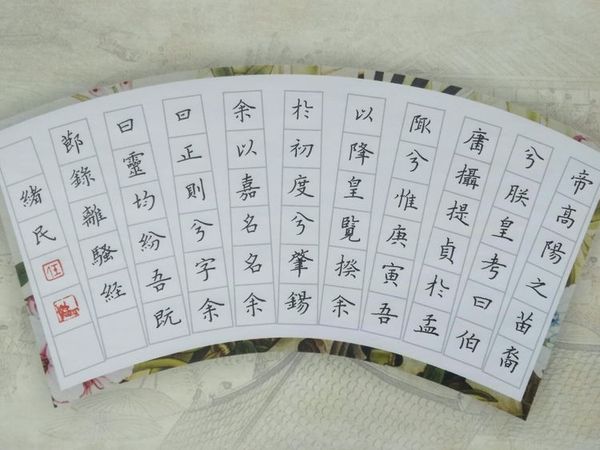 帝高陽之苗裔
兮朕皇考曰伯
庸攝提貞於孟
陬兮惟庚寅吾
以降皇覽揆余
於初度兮肇錫
余以嘉名名余
曰正則兮字余
曰靈均紛吾既
莭錄離騷經
緒民